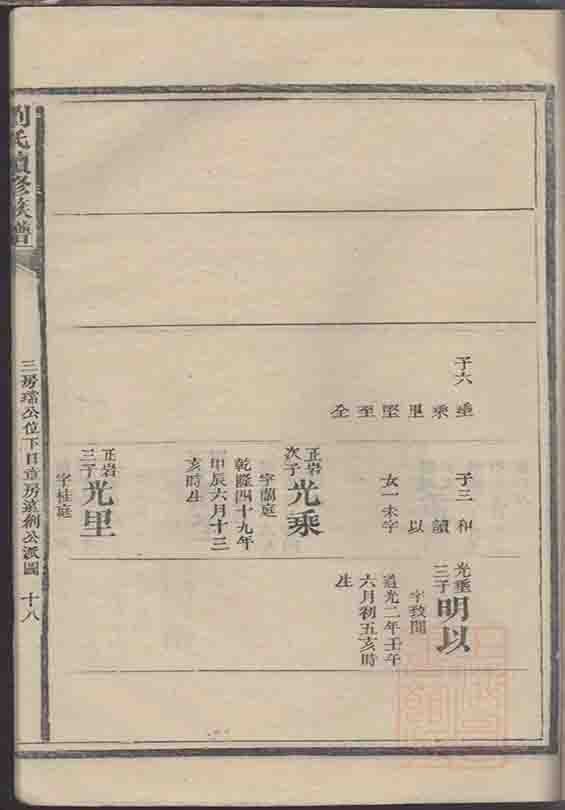 子六 垂
乘
里
堅
至
全
子三 和
讀
以
女一未字
正岩次子光乘
字蘭庭
乾隆四十九年
甲辰六月十三
亥時生
正岩三子光里
字桂庭
光垂三子明以
字致聞
道光二年壬午
六月初五亥時
生
劉氏續修族譜
三房 公位下日章房 創公派圖 十八